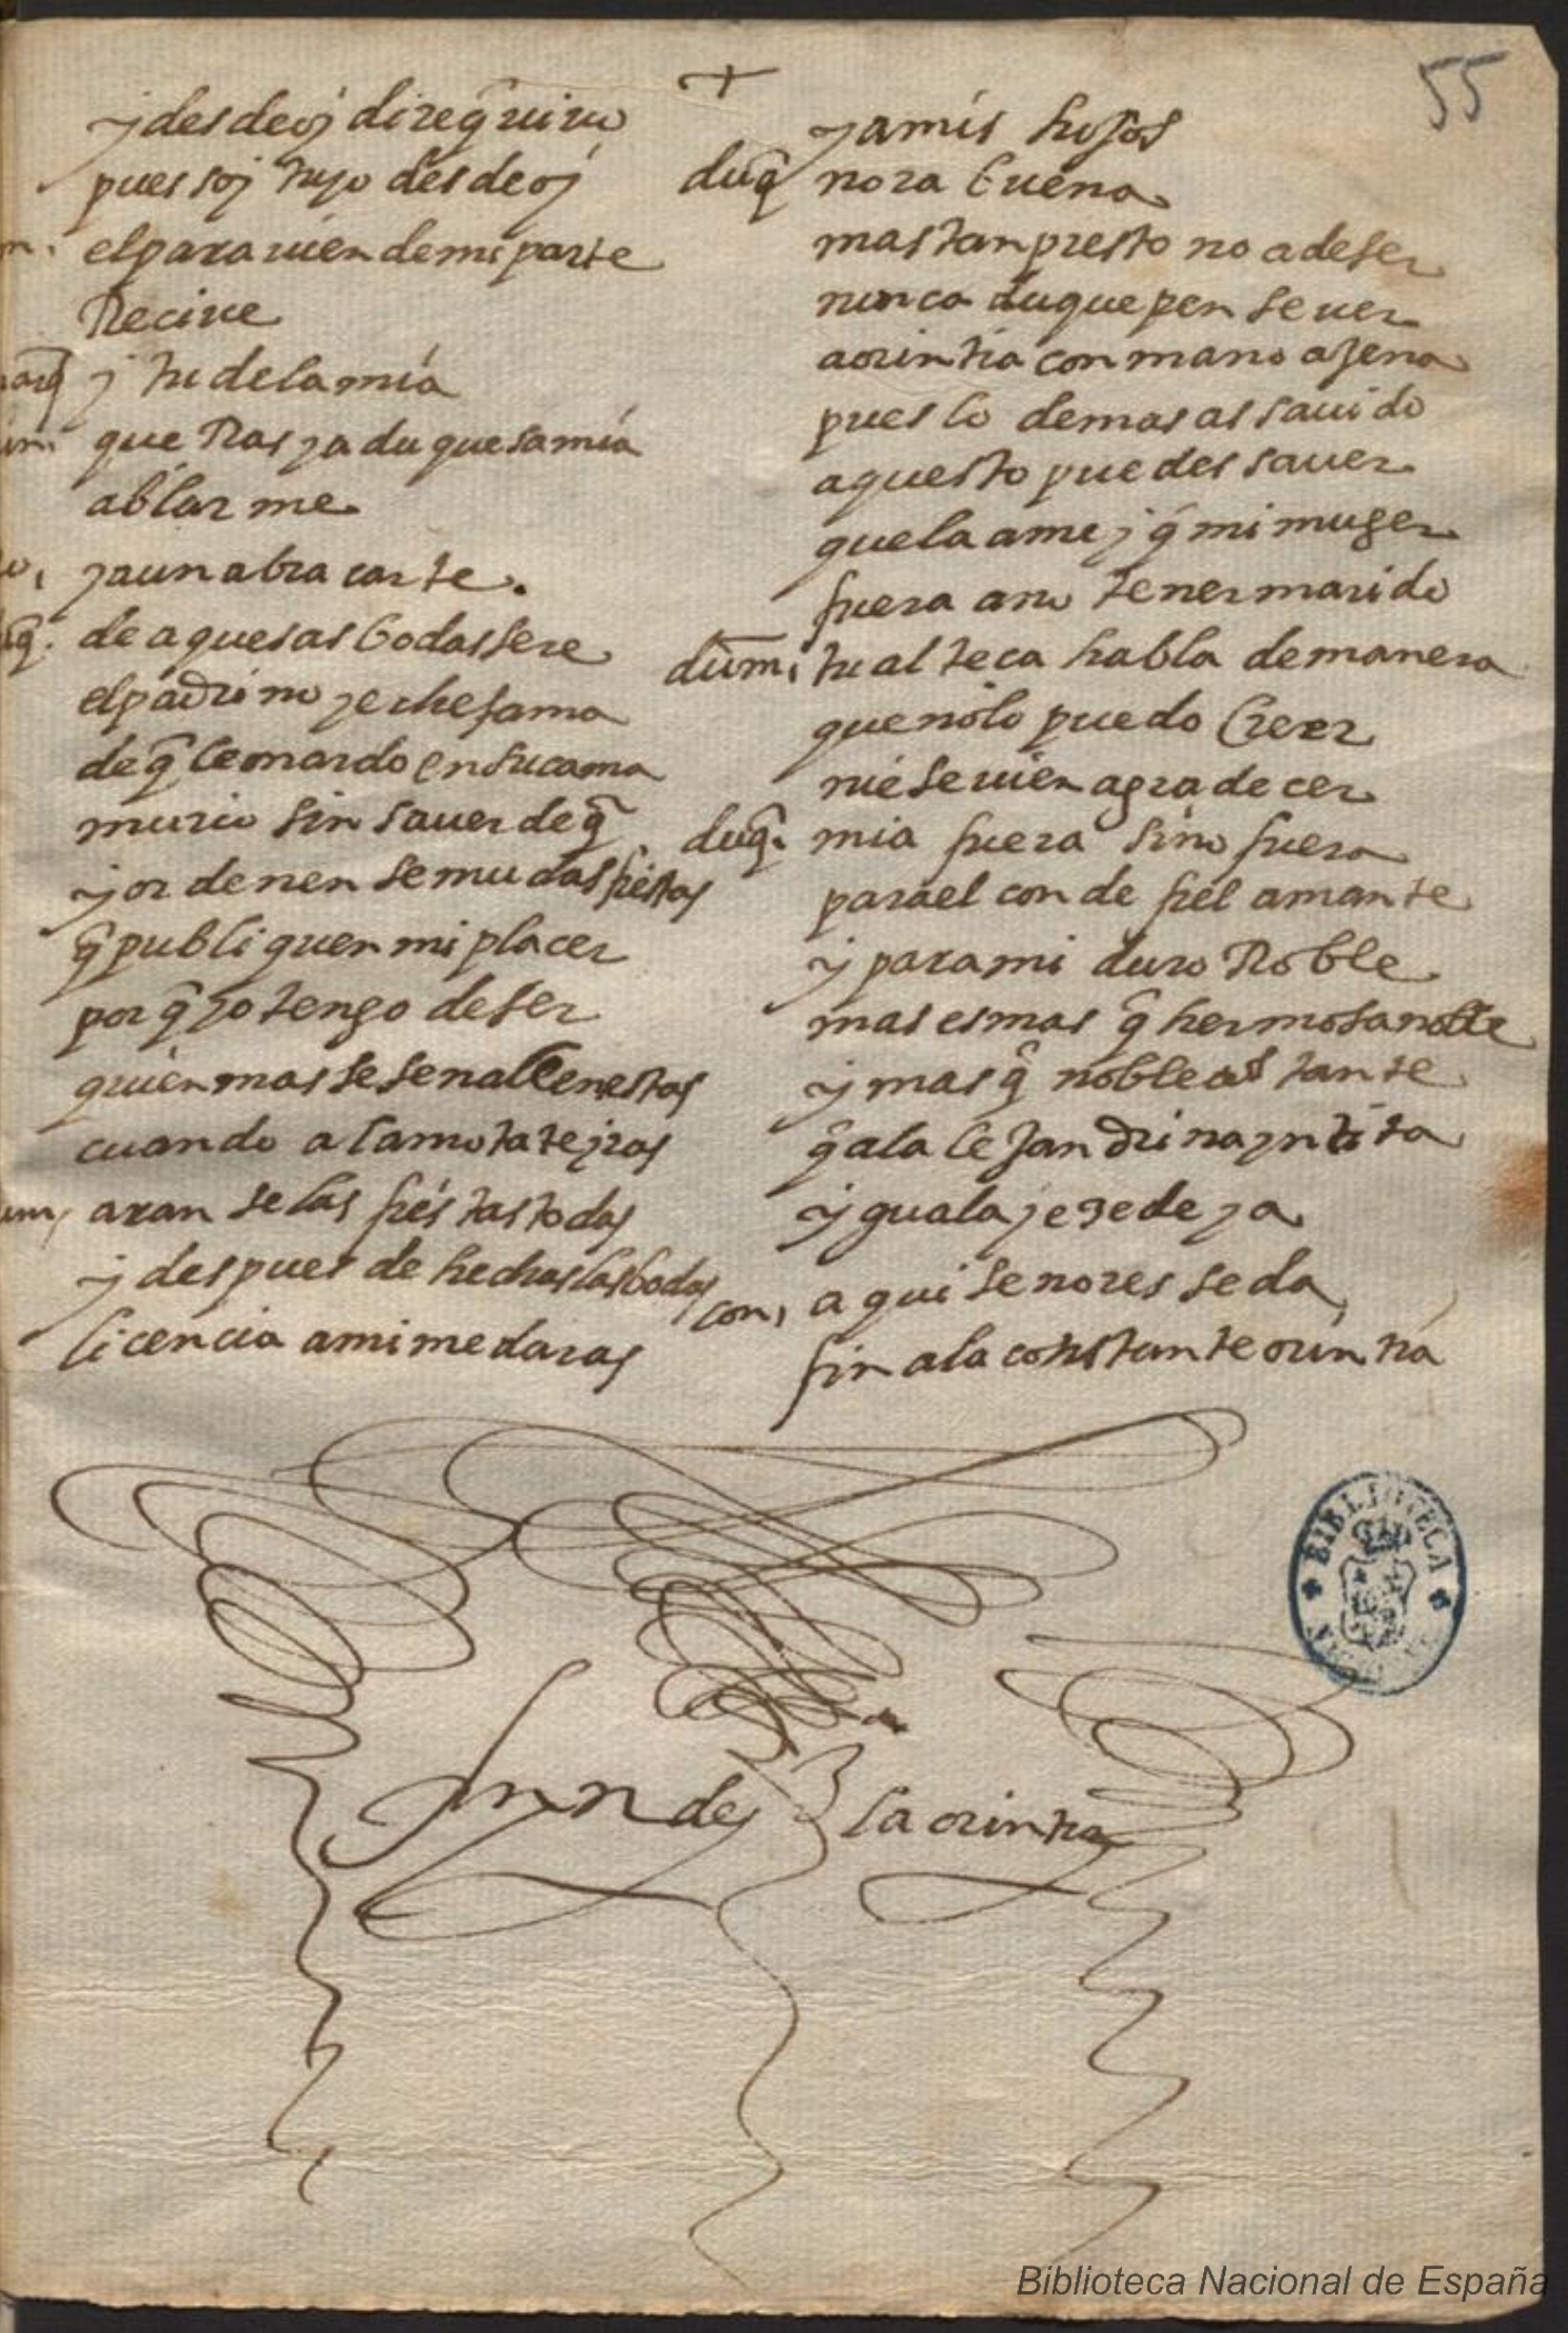 55
y desdeoy dire q̃ viuo
pues soy tuyo desdeoy
el parauien de mi parte
Reciue
y tu de la mia
que Tras ya duquesa mia
ablar me
y aun abracarte.
de aquesas bodas sere
el padrino y eche fama
de q̃ leonardo en su cama
murio sin sauer de q̃
y ordenen se mudas fiestas
q̃ publiquen mi placer
por q̃ yo tengo de ser
quien mas se senale en estas
cuando a la mota te yras
aran se las fiestas todas
y despues de hechas las bodas
licencia a mi me daras
y a mis hijos
duq̃ nora buena
mas tan presto no a de ser
nunca duque pense ver
a orintia con mano ajena
pues lo demas as sauido
aquesto puedes sauer
que la ame y q̃ mi muger
fuera a no tener marido
dum, tu alteca habla de manera
que no lo puedo Creer
ni e se uien agradecer
duq̃. mia fuera sino fuera
para el conde fiel amante
y para mi duro Roble
mas es mas q̃ hermosa noble
y mas q̃ noble costante
q̃ a la lejandrina yntita
yguala y ecede ya
con, aqui senores se da
fin a la constante orintia
fin de la orintia
BIBLIOTECA
Biblioteca Nacional de España